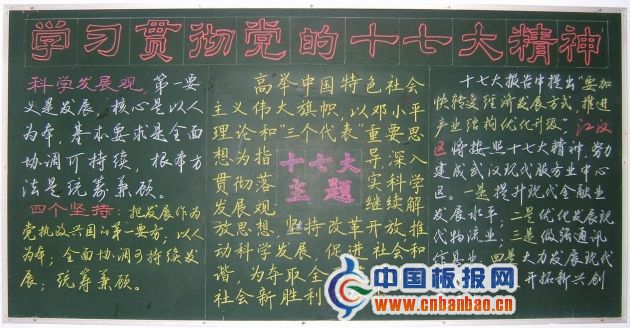 学习贯彻党的十七大精神
科学发展观,第一要
义是发展,核心是以人
为本,基本要求是全面
协调可持续,根本方
法是统筹兼顾。
四个坚持:把发展作为
党执政兴国的第一要务,以人
为本;全面协调可持续发
展;统筹兼顾。
高举中国特色社会
主义伟大旗帜,以邓小平
理论和“三个代表”重要思
想为指导,深入
贯彻落实科学
发展观 继续解
放思想,坚持改革开放推
动科学发展,促进社会和
谐,为夺取全
社会新胜利
十七大
主题
十七大报告中提出“要加
快转变经济发展方式,推进
产业结构优化升级”江汉
区将按照十七大精神,努力
建成武汉现代服务业中心
区。一是提升现代金融业
发展水平,二是优化发展现
代物流业,三是做强通讯
信息业,四是大力发展现代
开拓新兴创
中国板报网
www.cnbanbao.cn